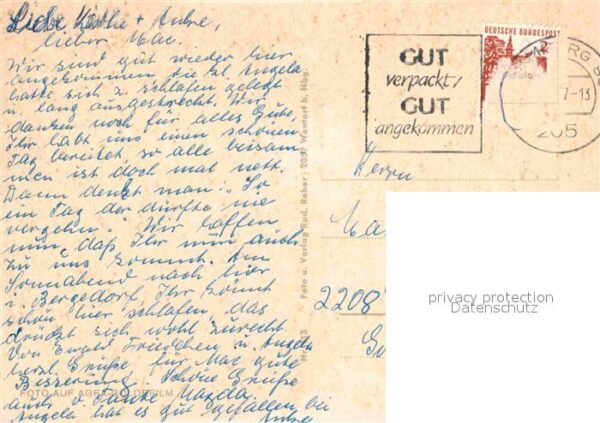 Liebe Käthe + Anke,
lieber Mac.
Wir sind gut wieder hier
angekommen die kl. Angela
hatte sich z. schlafen gelegt
u. lang ausgestreckt. Wir
danken noch für alles Gute,
Ihr habt uns einen schönen
Tag bereitet, so alle beisam
men ist doch mal nett.
Dann denkt man: "So
ein Tag der dürfte nie
vergehn." Wir hoffen
nun, daß Ihr nun auch
zu uns kommt. Am
Sonnabend nach hier
i. Bergedorf. Ihr könnt
schön hier schlafen, das
drückt sich wohl zurecht
Von Ewald Friedchen u. Angela
herzl. Grüße, für Mac gute
Besserung. Schöne Grüße
auch v. Tante Magda.
Angela hat es gut gefallen bei
FOTO AUF AGFA
Foto u. Verlag Rud. Reher · 2057 Wentorf b. Hbg.
DEUTSCHE BUNDESPOST
GUT
verpackt/
GUT
angekommen
7-13
205
Herrn
2208
privacy protection
Datenschutz